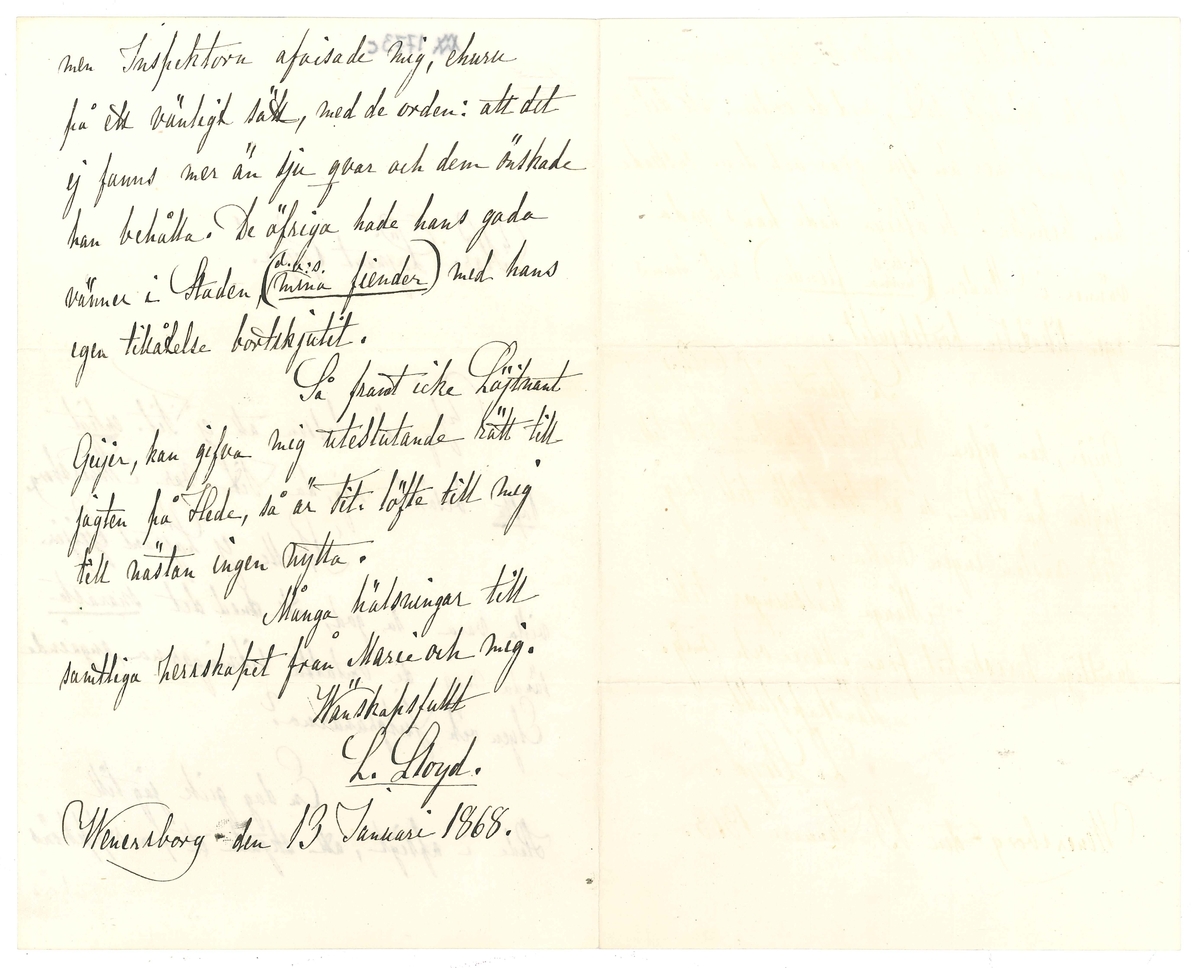 men Inspektorn afvisade mig, ehuru
på ett vänligt sätt, med de orden: att det
ej fanns mer än sju qvar och dem önskade
han behålla. De öfriga hade hans goda
vänner i Staden (d.v.s. mina fiender) med hans
egen tillåtelse bortskjutit.
Så framt icke Löjtnant
Geijer, kan gifva mig uteslutande rätt till
jagten på Hede, så är Tit. löfte till mig
till nästan ingen nytta.
Många hälsningar till
samtliga herrskapet från Marie och mig.
Wänskapsfullt
L. Lloyd.
Wenersborg - den 13 Januari 1868.